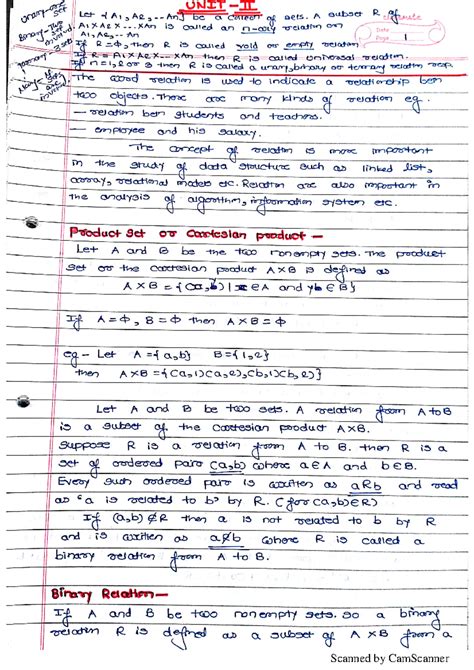 UNIT - II
Let {A1, A2, --- An} be a of sets. A subset R of
A1XA2X---XAn is called an n-ary relation on
A1, A2 -- An
If R = Φ, then R is called void or empty relation
If R = A1XA2X---XAn then R is called universal relation.
If n=1,2 or 3 then R is called a unary, binary or ternary relation resp.
Date
Page 1
The word relation is used to indicate a relationship betn
two objects. There are many kinds of relation eg.
– relation betn students and teachers.
– employee and his salary.
The concept of relation is more important
in the study of data structure such as linked list,
array, relational models etc. Relation are also important in
the analysis of algorithm, information system etc.
Product set or Cartesian product –
Let A and B be the two nonempty sets. The product
set or the cartesian product AXB is defined as
A X B = {(a, b) | x ∈ A and yb ∈ B}
If A = Φ, B = Φ then A X B = Φ
eg - Let A = {a, b} B = {1, 2}
then A X B = {(a,1)(a,2),(b,1)(b,2)}
Let A and B be two sets. A relation from A to B
is a subset of the cartesian product AXB.
Suppose R is a relation from A to B. then R is a
set of ordered pair (a,b) where a ∈ A and b ∈ B.
Every such ordered pair is written as aRb and read
as 'a is related to b' by R. (for (a,b) ∈ R)
If (a,b) ∉ R then a is not related to b by R
and is written as aR̸b where R is called a
binary relation from A to B.
Binary Relation –
If A and B be two nonempty sets. so a binary
relation R is defined as a subset of A X B from a
Scanned by CamScanner